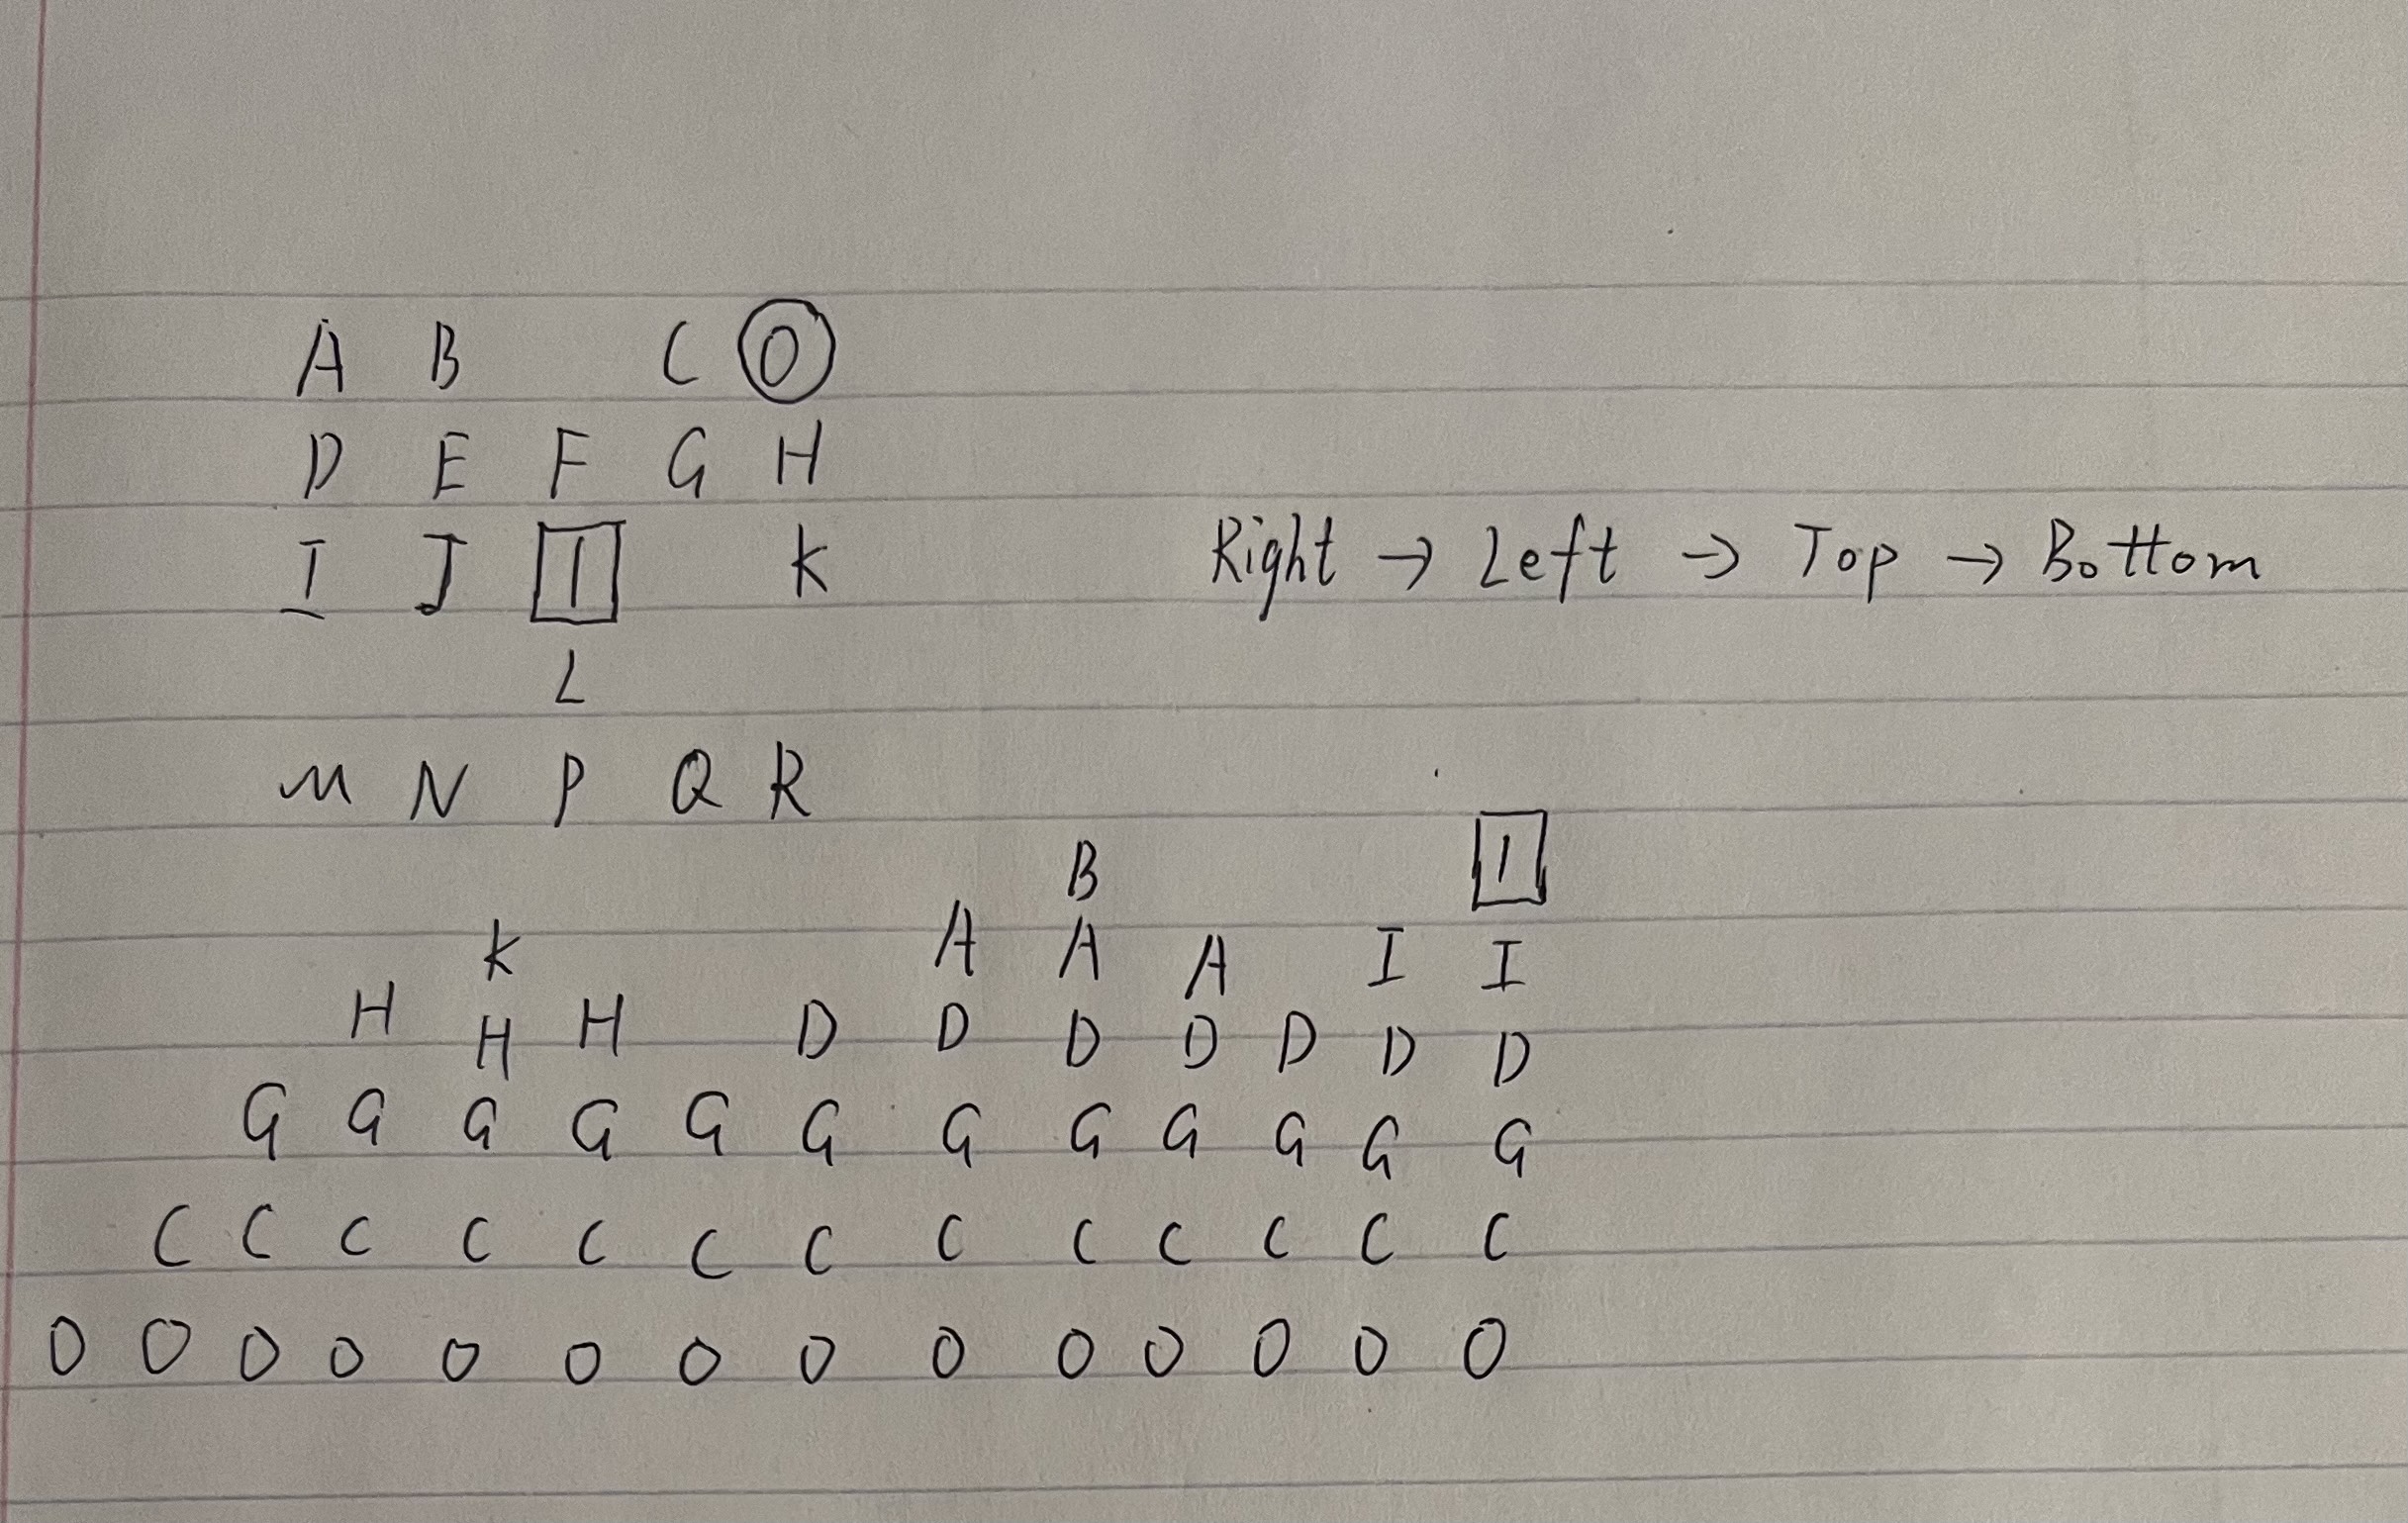 A B C O
D E F G H
I J 1 K
Right → Left → Top → Bottom
L
M N P Q R
B 1
K A A A I I
H H H D D D D D D D
G G G G G G G G G G G G
C C C C C C C C C C C C C
O O O O O O O O O O O O O O